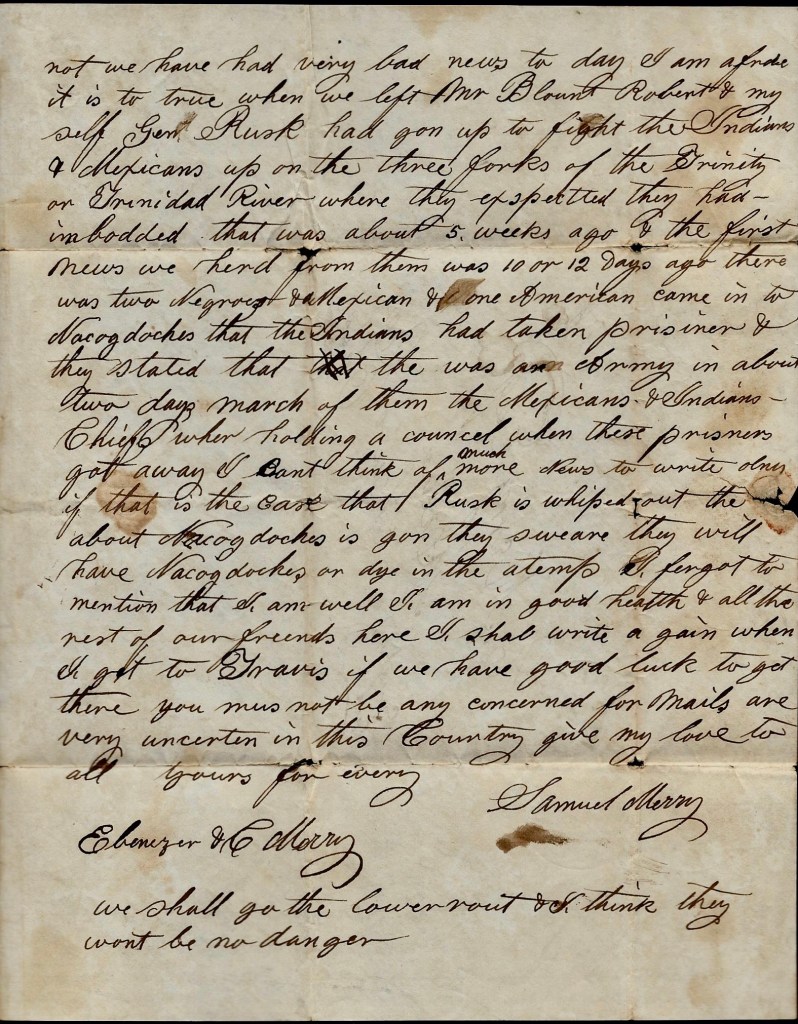 not we have had very bad news to day I am afrde
it is to true when we left Mr Blount Robert & my
self Gen. Rusk had gon up to fight the Indians
& Mexicans up on the three forks of the Trinity
or Trinidad River where they expected they had-
imbodded that was about 5 weeks ago & the first
News we herd from them was 10 or 12 Days ago there
was two Negroes & a Mexican & one American came in to
Nacogdoches that the Indians had taken prisiner &
they stated that the was an Army in about
two days march of them the Mexicans & Indians-
Chiefs wher holding a councel when these prisners
got away I cant think of much more News to write ony
if that is the case that Rusk is whiped out the
about Nacogdoches is gon they sweare they will
have Nacogdoches or dye in the atemp I fergot to
mention that I am well I am in good health & all the
rest of our freends here I shal write a gain when
I get to Travis if we have good luck to get
there you mus not be any concerned for Mails are
very uncerten in this Country give my love to
all Yours for every
Samuel Merry
Ebenezer & C Merry
we shall go the lower rout & I think they
wont be no danger